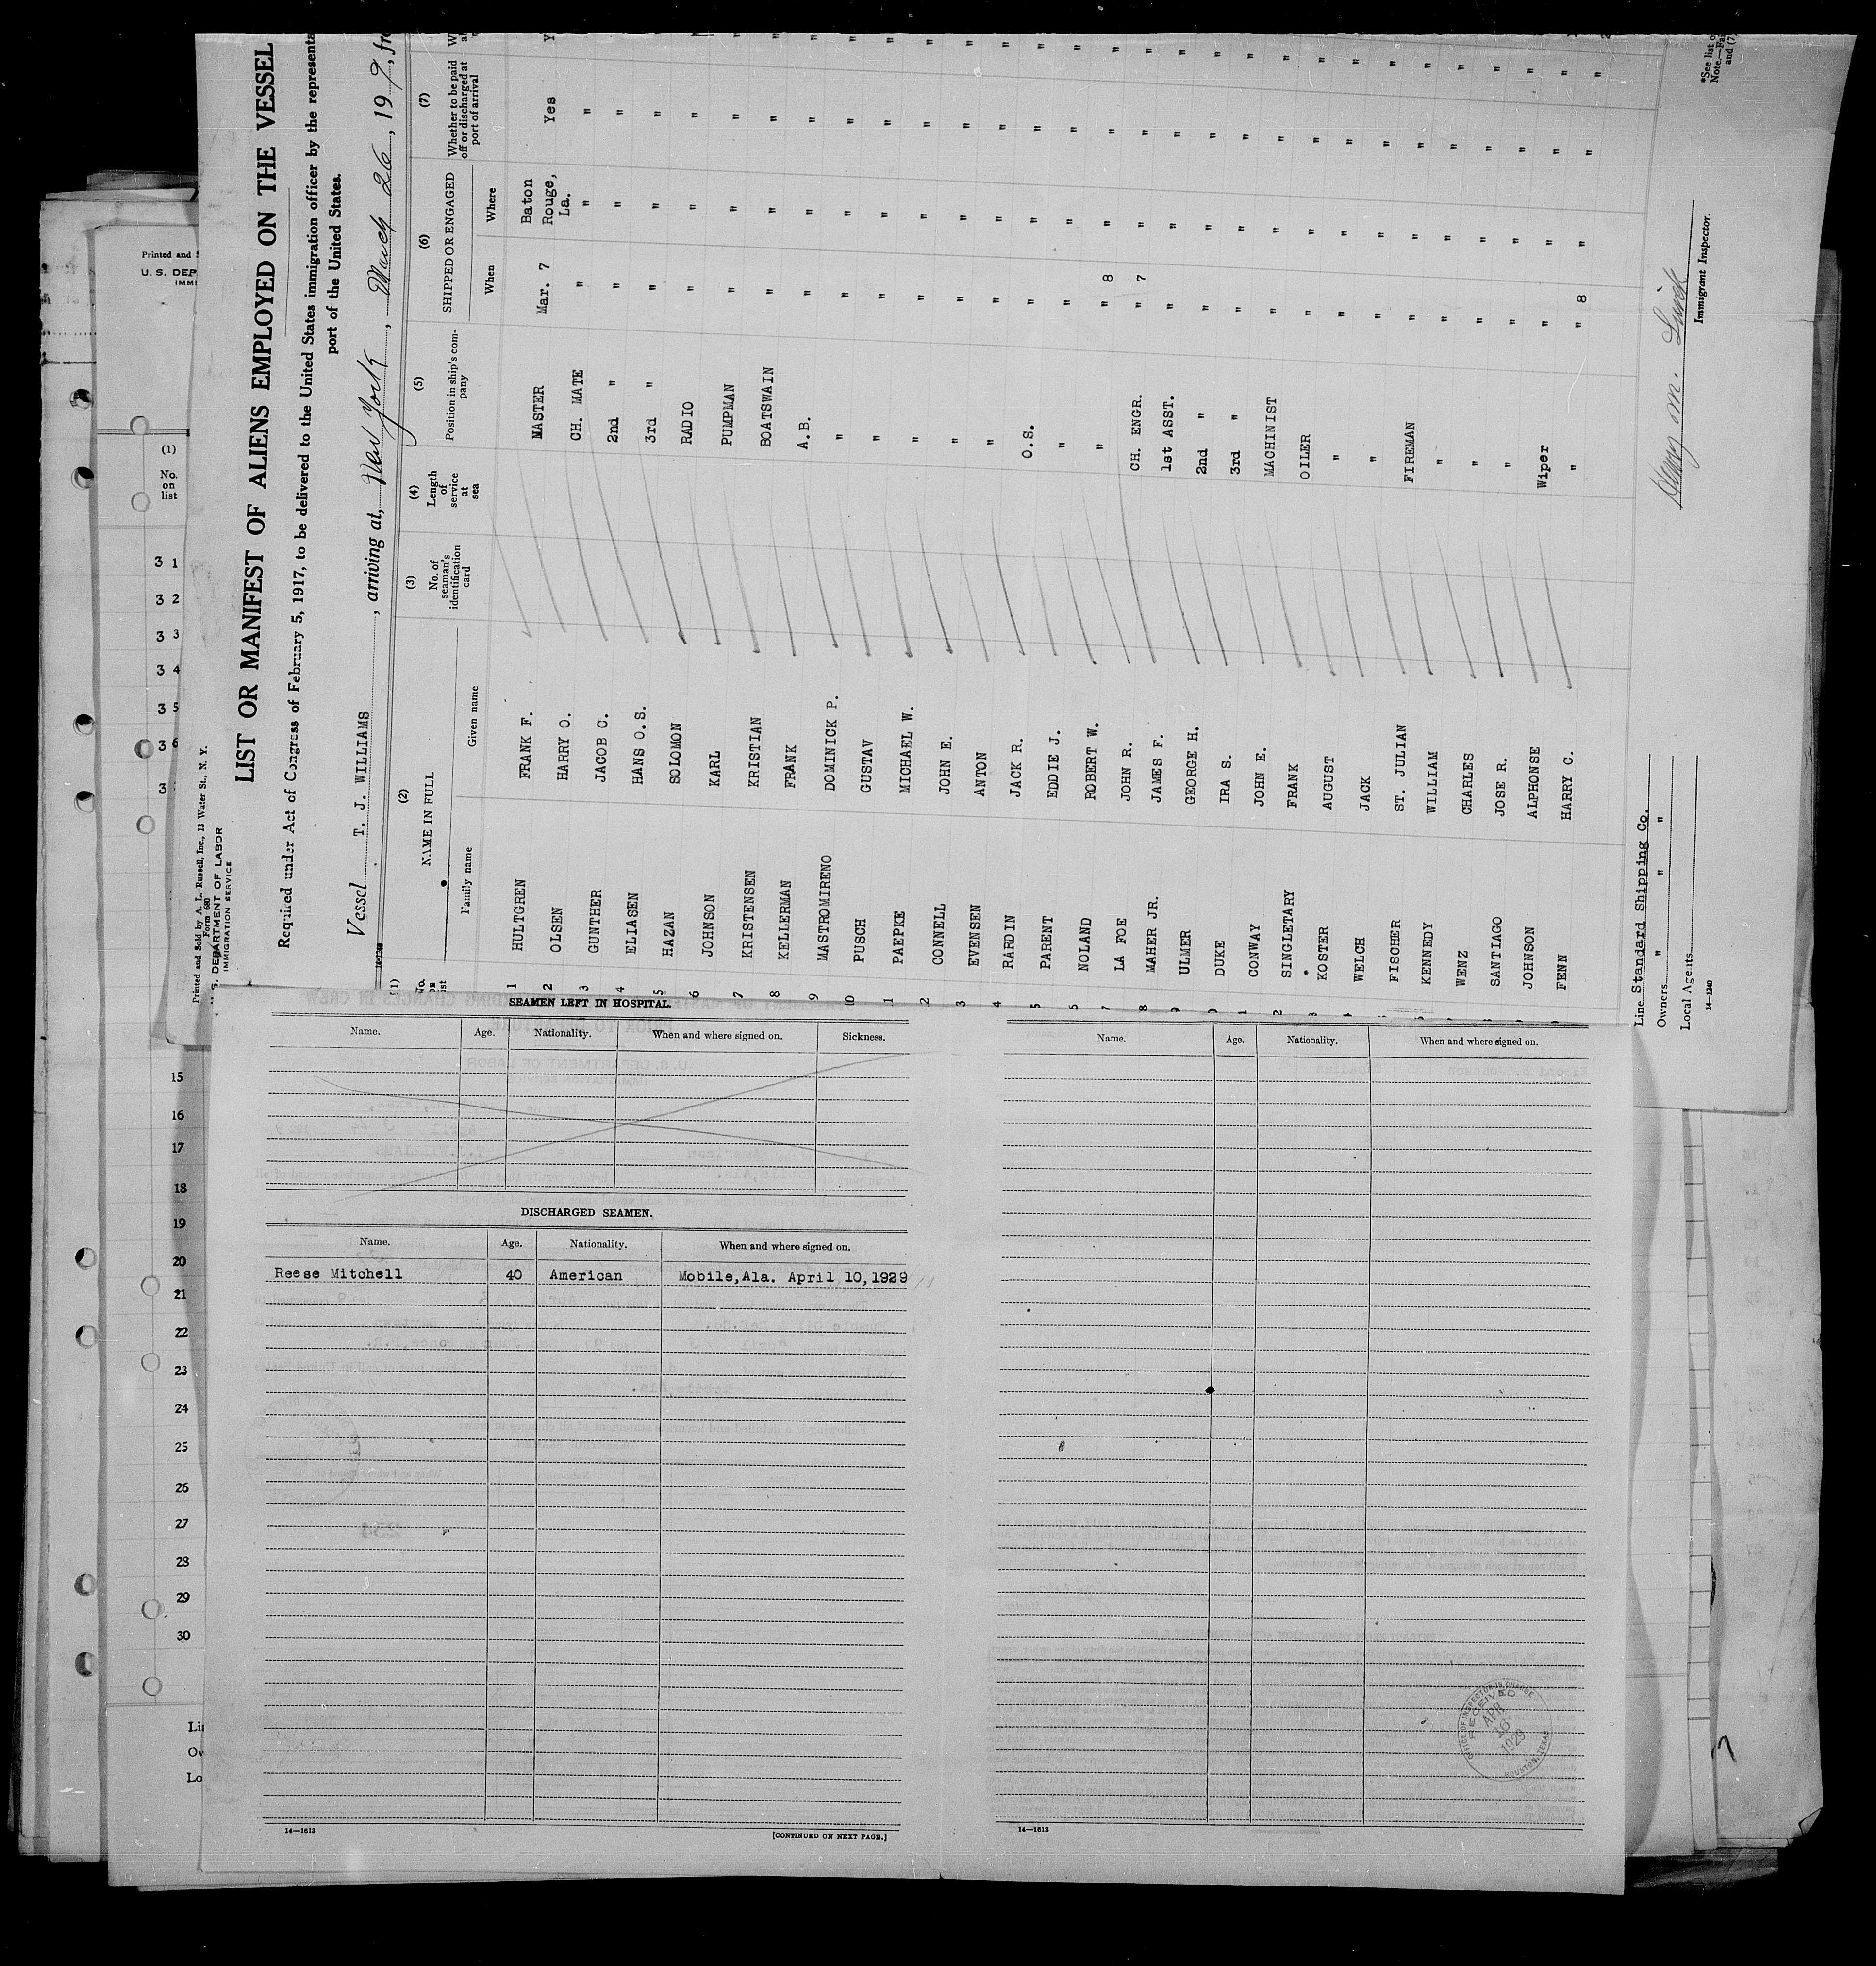 Printed and Sold by A. L. Russell, Inc., 13 Water St., N. Y.
Form 680
U. S. DEPARTMENT OF LABOR
IMMIGRATION SERVICE
LIST OR MANIFEST OF ALIENS EMPLOYED ON THE VESSEL
Required under Act of Congress of February 5, 1917, to be delivered to the United States immigration officer by the representa
port of the United States.
Vessel T. J. WILLIAMS, arriving at, New York, March 26, 19
(1) (2) (3) (4) (5) (6) (7)
NAME IN FULL
Family name Given name
No. of seaman's identification card
Length of service at sea
Position in ship's company
SHIPPED OR ENGAGED
When Where
Whether to be paid off or discharged at port of arrival
1 HULTGREN FRANK F. MASTER Mar. 7 Baton Rouge, La. Yes
2 OLSEN HARRY O. CH. MATE " " "
3 GUNTHER JACOB C. 2nd " " " "
4 ELIASEN HANS O.S. 3rd " " " "
5 HAZAN SOLOMON RADIO " " "
6 JOHNSON KARL PUMPMAN " " "
7 KRISTENSEN KRISTIAN BOATSWAIN " " "
8 KELLERMAN FRANK A.B. " " "
9 MASTROMIRENO DOMINICK P. " " " "
10 PUSCH GUSTAV " " " "
1 PAEPKE MICHAEL W. " " " "
2 CONNELL JOHN E. " " " "
3 EVENSEN ANTON " " " "
4 RARDIN JACK R. O.S. " " "
5 PARENT EDDIE J. " " " "
NOLAND ROBERT W. " " " "
7 LA FOE JOHN R. CH. ENGR. " 8 " "
8 MAHER JR. JAMES F. 1st ASST. " 7 " "
ULMER GEORGE H. 2nd " " " "
DUKE IRA S. 3rd " " " "
1 CONWAY JOHN E. MACHINIST " " "
2 SINGLETARY FRANK OILER " " "
KOSTER AUGUST " " " "
WELCH JACK " " " "
FISCHER ST. JULIAN FIREMAN " " "
KENNEDY WILLIAM " " " "
WENZ CHARLES " " " "
SANTIAGO JOSE R. " " " "
JOHNSON ALPHONSE Wiper " " "
FENN HARRY C. " " 8 " "
Line Standard Shipping Co.
Owners " " "
Local Agents
14—1240
Immigrant Inspector.
*See list o
Note.—Fai
and (7
Printed and
U. S. DEP
IMMI
(1)
No. on list
31
32
33
34
35
36
3
15
16
17
18
19
20
21
22
23
24
25
26
27
28
29
30
Li
Ow
Lo
SEAMEN LEFT IN HOSPITAL.
Name. Age. Nationality. When and where signed on. Sickness.
DISCHARGED SEAMEN.
Name. Age. Nationality. When and where signed on.
Reese Mitchell 40 American Mobile,Ala. April 10,1929
14—1613
[CONTINUED ON NEXT PAGE.]
Name. Age. Nationality. When and where signed on.
OFFICE OF INSPECTOR IN CHARGE
RECEIVED
APR
16
1929
HOUSTON, TEXAS
14—1613